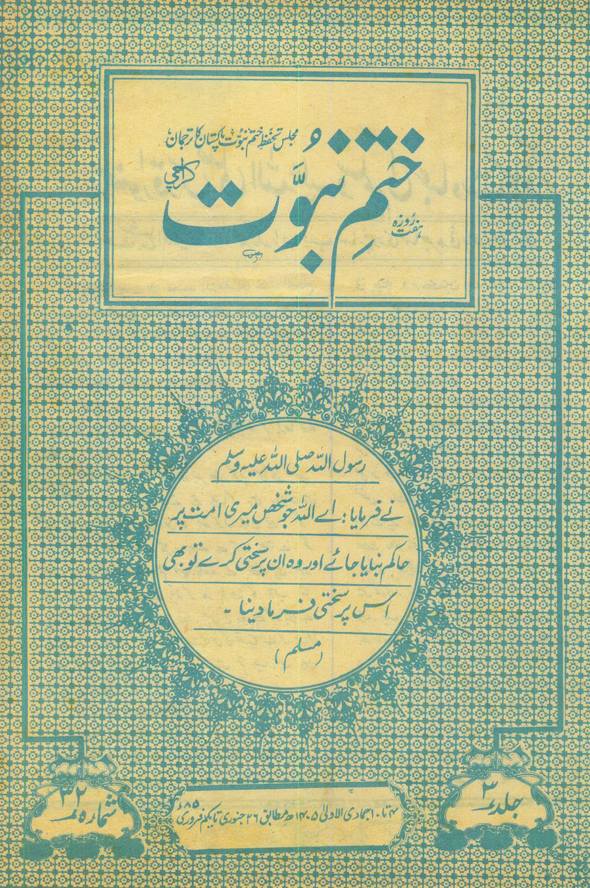 مجلس تحفظ ختم نبوت پاکستان کا ترجمان
ختمِ نبوَّت
کراچی
ہفت روزہ
رسول اللہ صلی اللہ علیہ وسلم
نے فرمایا: اے اللہ جو شخص میری امت پر
حاکم بنایا جائے اور وہ ان پر سختی کرے تو بھی
اس پر سختی فرما دینا ۔
(مسلم)
جلد ۳
شمارہ ۳۲
۴ تا ۱۰ جمادی الاولیٰ ۱۴۰۵ھ مطابق ۲۶ جنوری تا یکم فروری ۸۵ء